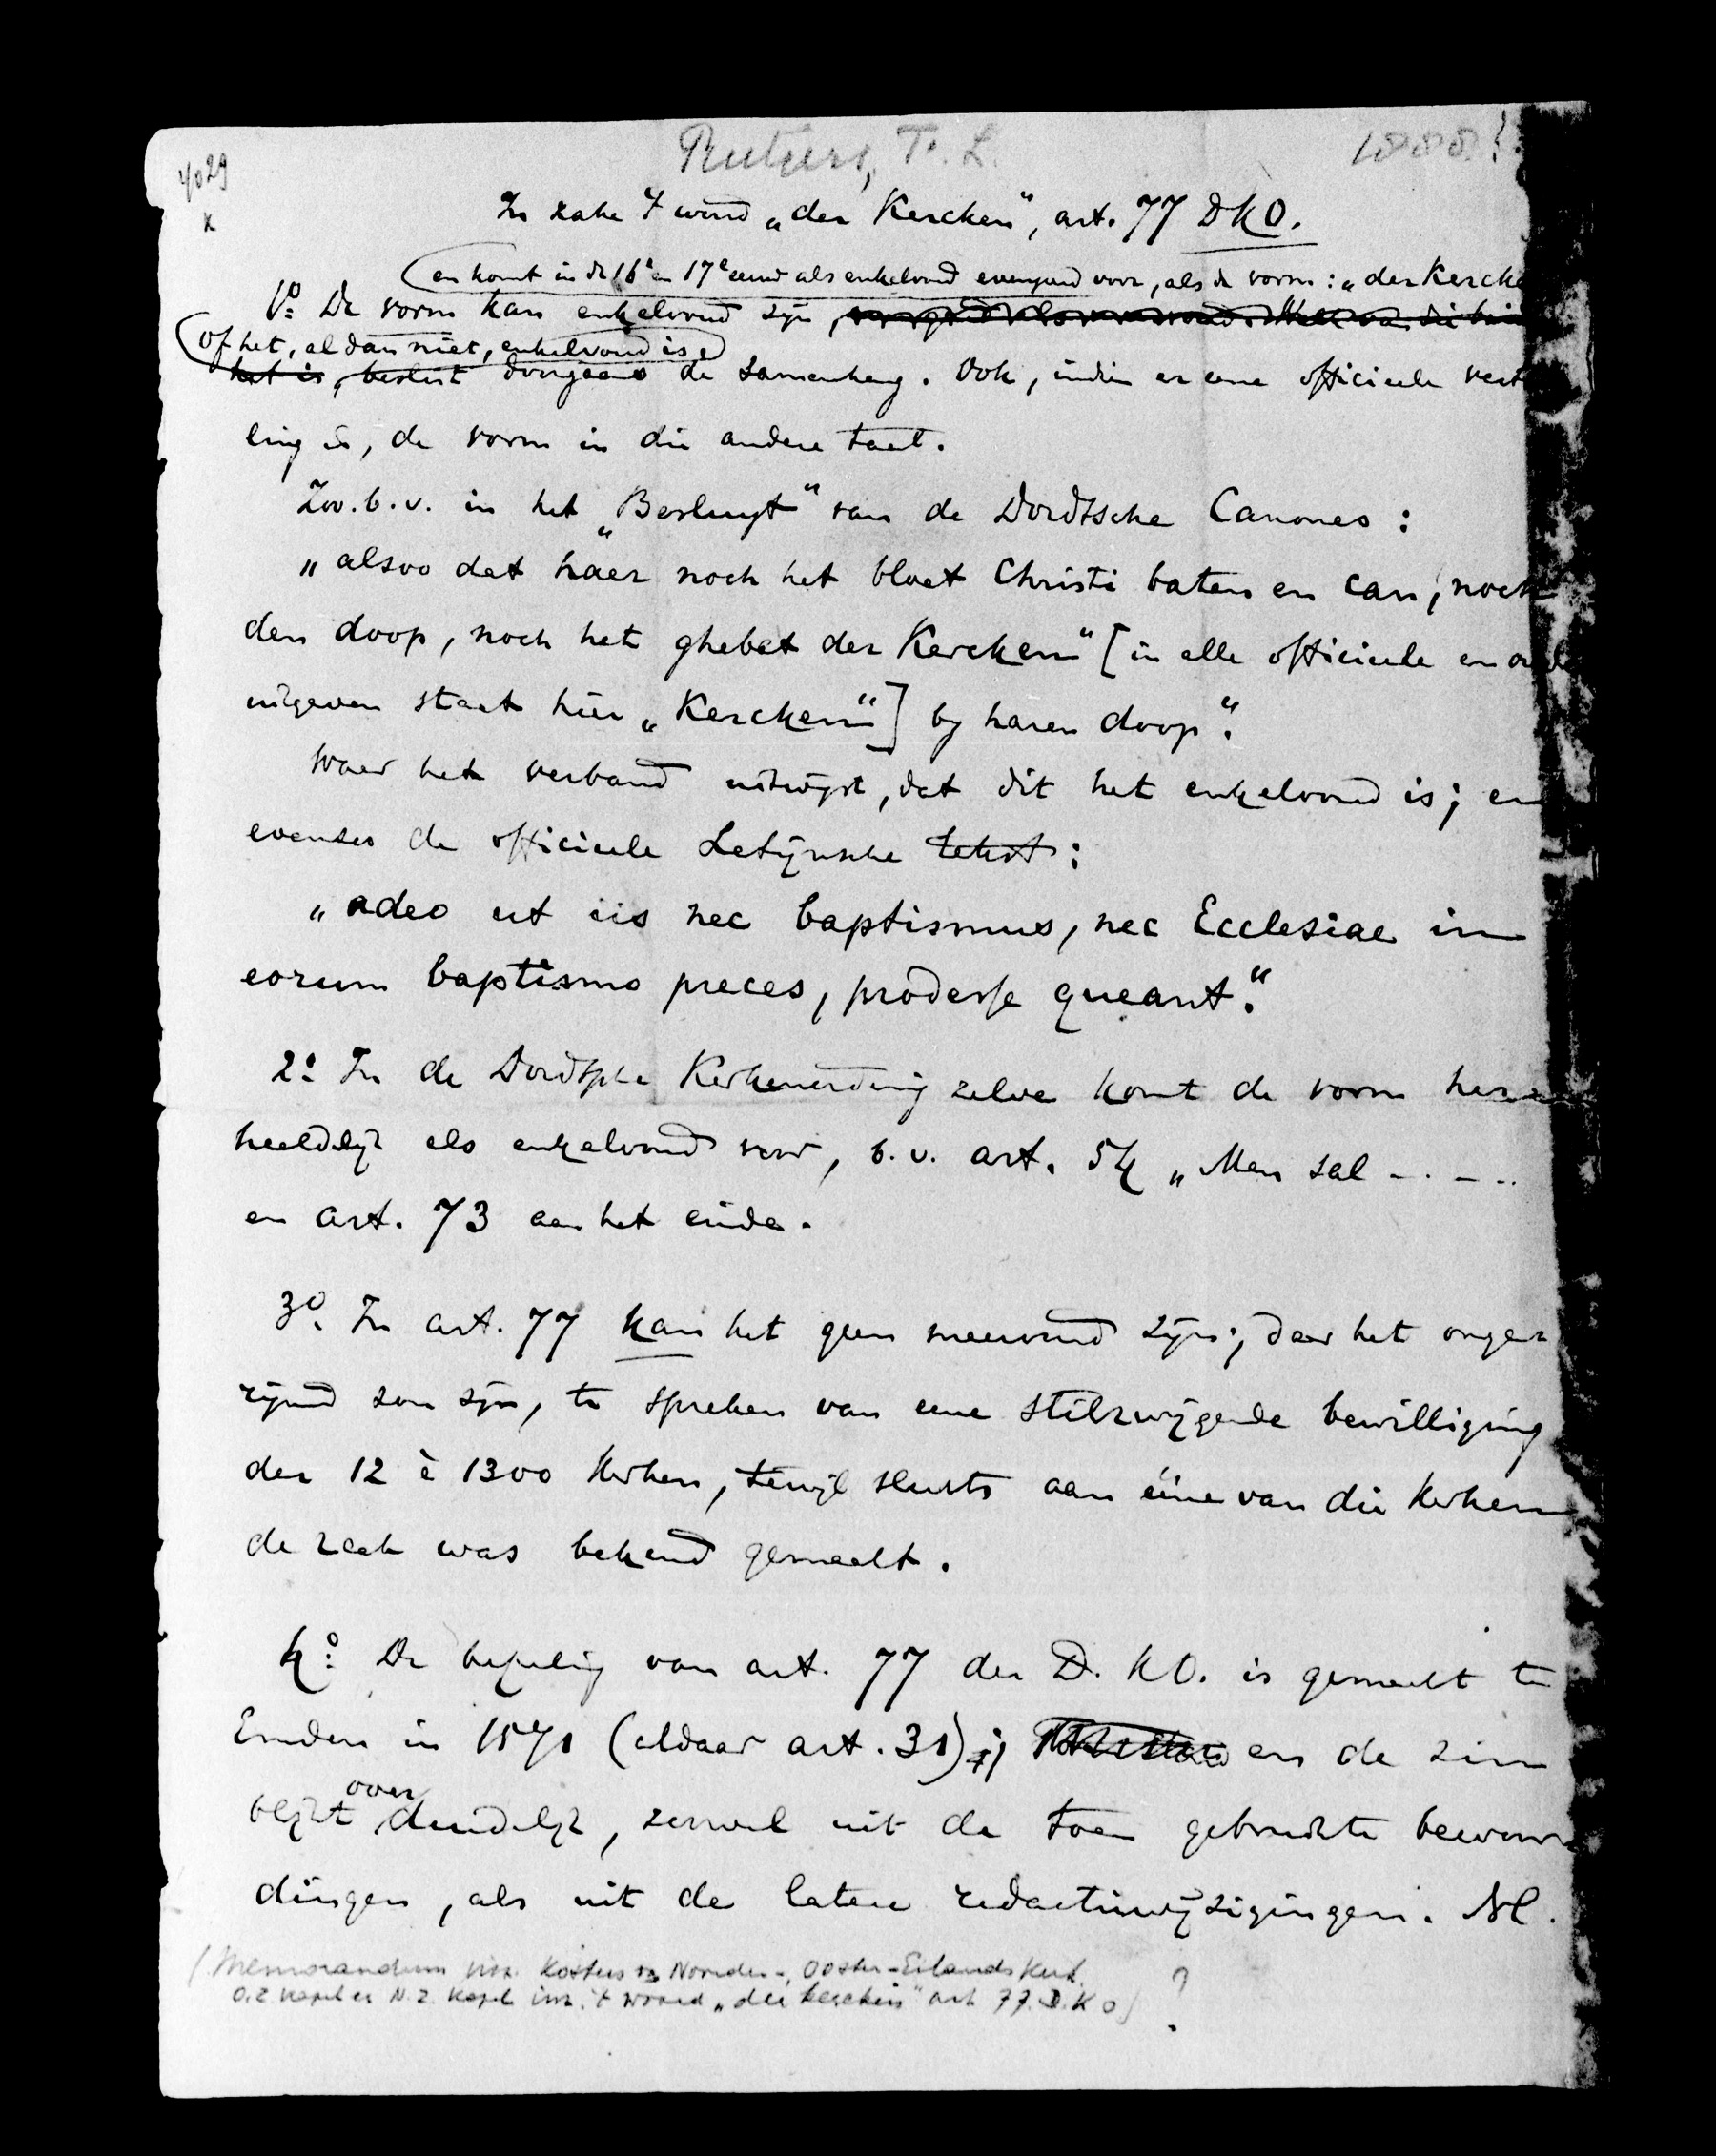 Rutgers, F. L.
1888?
4029
x
In zake 't woord „der Kercken“, art. 77 DKO.
en komt in de 16e en 17e eeuw als enkelvoud evengoed voor, als de vorm: „der Kercke
1o. De vorm kan enkelvoud zijn,
of het, al dan niet, enkelvoud is,
het is, beslist doorgaans de samenhang. Ook, indien er eene officieele vert
ling is, de vorm in die andere taal.
Zoo b.v. in het „Besluyt“ van de Dordtsche Canones:
„alsoo dat haer noch het bloet Christi baten en can, noch
den doop, noch het ghebet der Kercken“ [in alle officieele en oude
uitgaven staat hier „Kercken“] by haren doop“.
Waar het verband uitwijst, dat dit het enkelvoud is; en
evenzoo de officieele Latijnsche tekst:
„adeo ut iis nec baptismus, nec Ecclesiae in
eorum baptismo preces, prodesse queant.“
2o. In de Dordsche Kerkenordening zelve komt de vorm her
haaldelijk als enkelvoud voor, b.v. art. 54 „Men sal - . - ..
en art. 73 aan het einde.
3o. In art. 77 kan het geen meervoud zijn; daar het onge
rijmd zou zijn, te spreken van eene stilzwijgende bewilliging
der 12 à 1300 kerken, terwijl slechts aan ééne van die kerken
de zaak was bekend gemaakt.
4o. De bepaling van art. 77 der D. KO. is gemaakt te
Emden in 1571 (aldaar art. 31); en de zin
blijkt overduidelijk, zoowel uit de toen gebruikte bewoor
dingen, als uit de latere redactiewijzigingen. Nl.
(Memorandum inz. Kosters v. Noorder-, Ooster-Eilandskerk.
O.Z. Kapel en N.Z. Kapel inz. 't woord „der kercken“ art 77. D.K O) ?